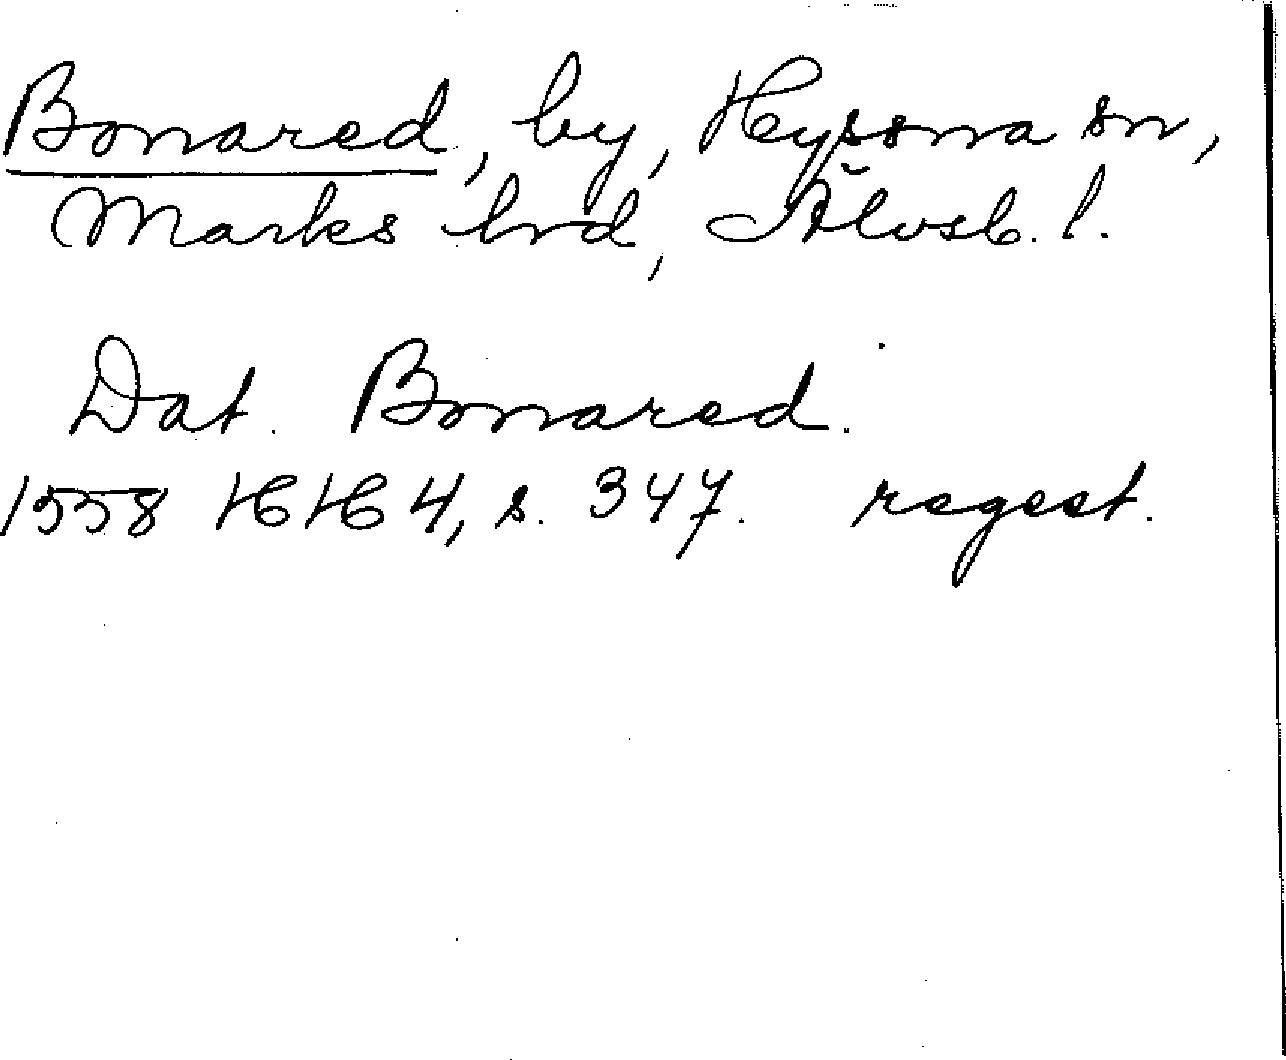 Bonared, by, Hyssna sn,
Marks hrd, Älvsb. l.
Dat. Bonared.
1558 HH 4, s. 347. regest.